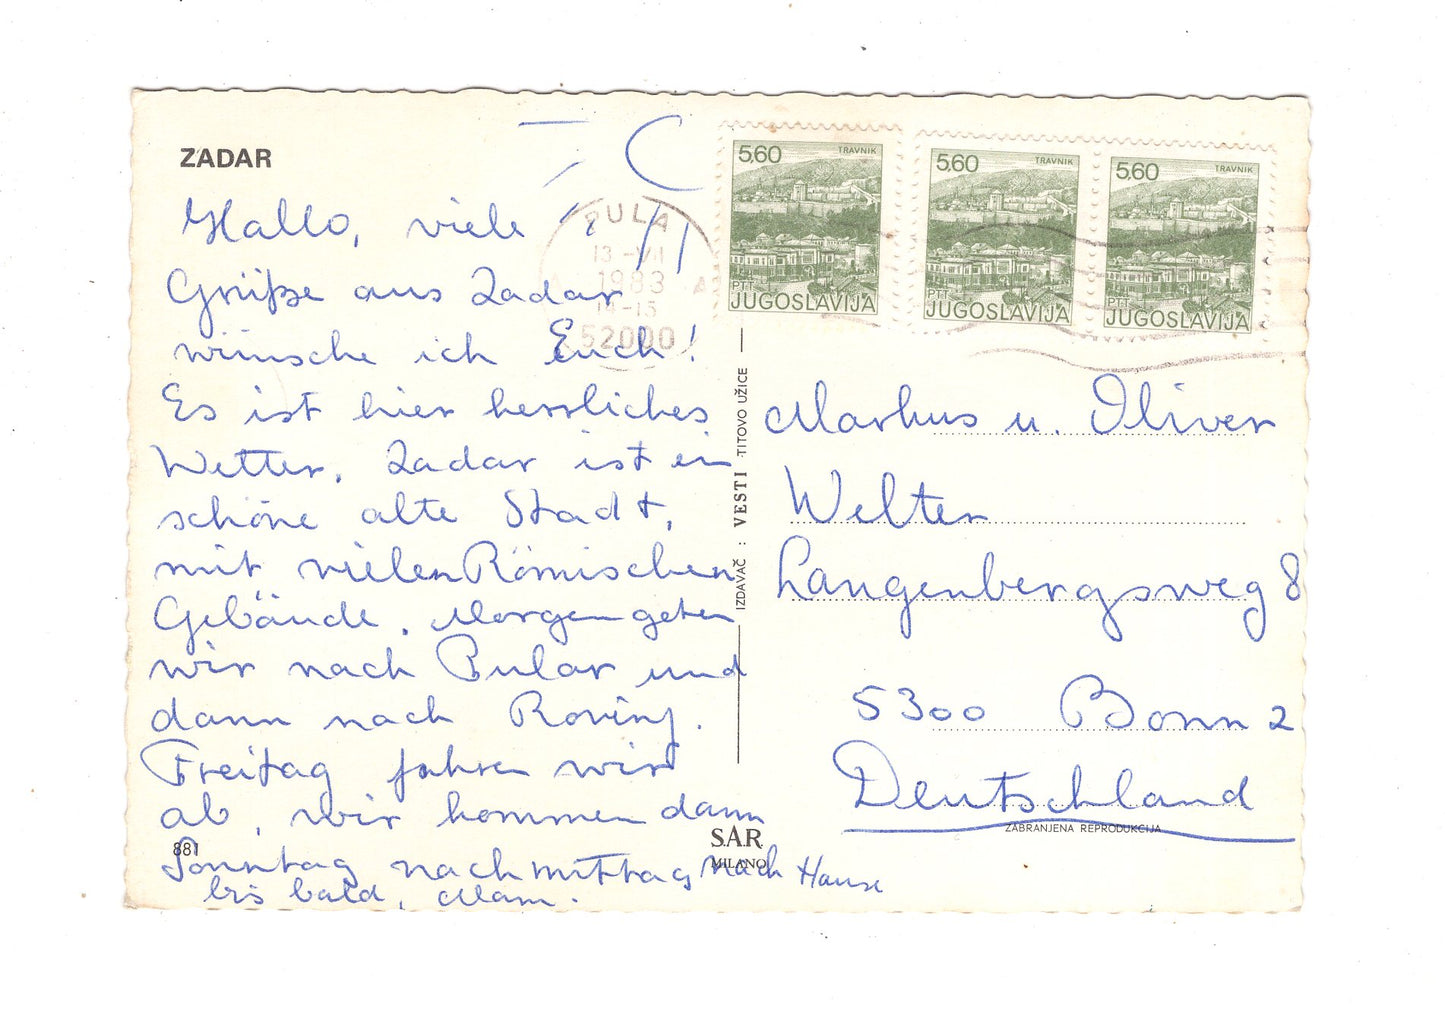 ZADAR
Hallo, viele
Grüße aus Zadar
wünsche ich Euch!
Es ist hier herrliches
Wetter, Zadar ist ein
schöne alte Stadt,
mit vielen Römischen
Gebäude. Morgen geten
wir nach Pular und
dann nach Rovinj.
Freitag fahren wir
ab, wir kommen dann
Sonntag nachmittag nach Hause
bis bald, Mam.
881
PULA
13 -VII
1983
14-15
52000
5,60 TRAVNIK
PTT
JUGOSLAVIJA
5,60 TRAVNIK
PTT
JUGOSLAVIJA
5,60 TRAVNIK
PTT
JUGOSLAVIJA
IZDAVAČ : VESTI - TITOVO UŽICE
S.A.R.
MILANO
Markus u. Oliver
Welter
Langenbergsweg 8
5300 Bonn 2
Deutschland
ZABRANJENA REPRODUKCIJA